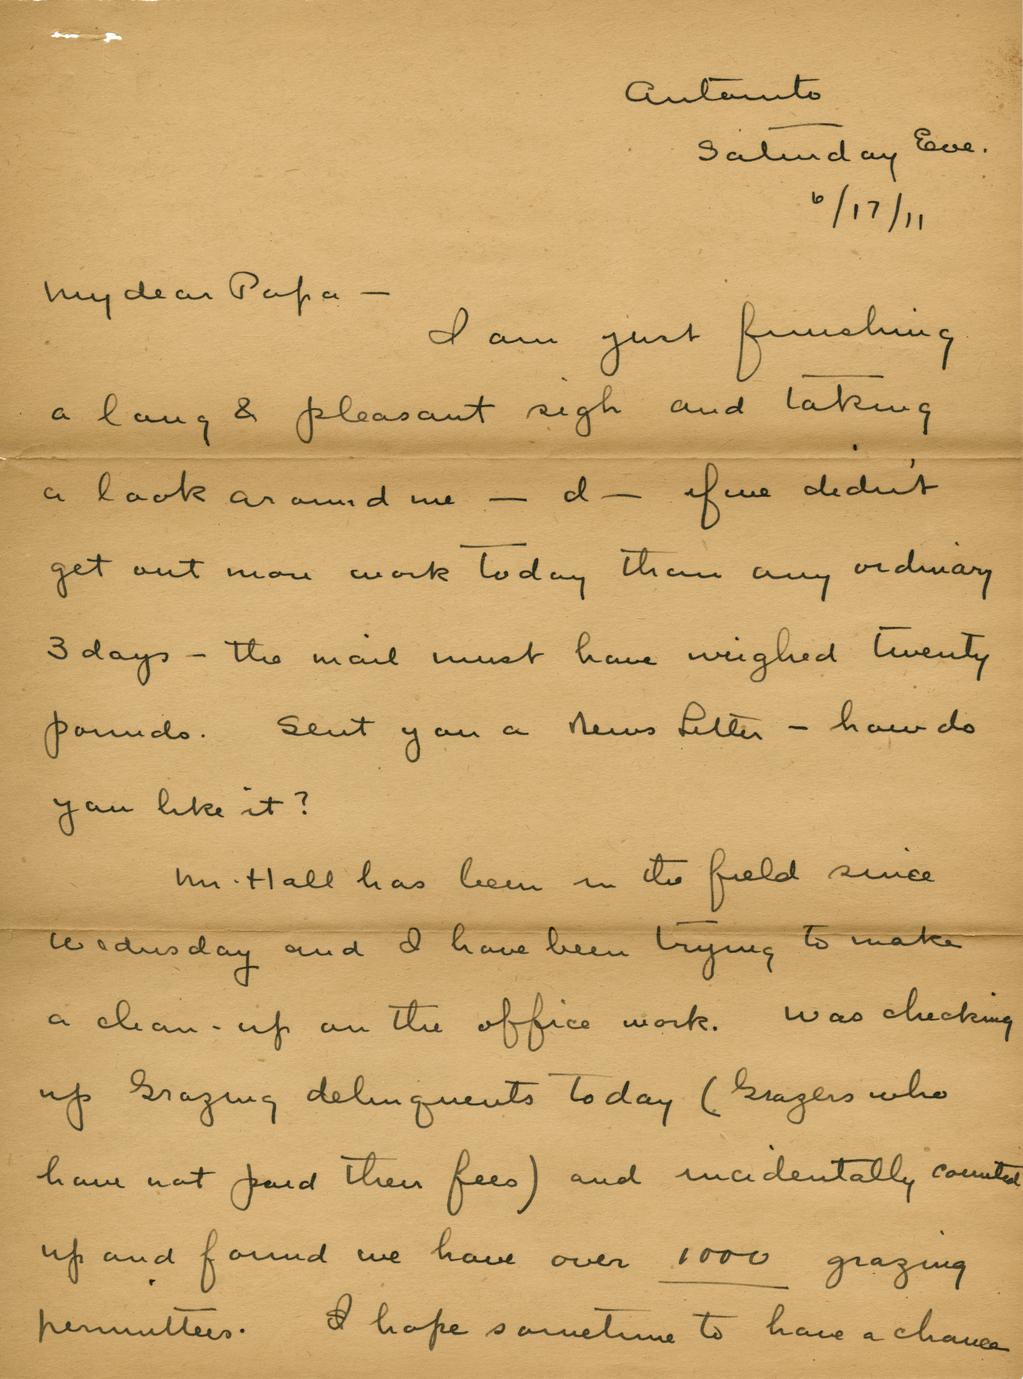 Antonito
Saturday Eve.
6/17/11
My dear Papa —
I am just finishing
a long & pleasant sigh and taking
a look around me — d — if we didn't
get out more work today than any ordinary
3 days — the mail must have weighed twenty
pounds. Sent you a News Letter — how do
you like it?
Mr. Hall has been in the field since
Wednesday and I have been trying to make
a clean-up on the office work. Was checking
up Grazing delinquents today (Grazers who
have not paid their fees) and incidentally counted
up and found we have over 1000 grazing
permittees. I hope sometime to have a chance